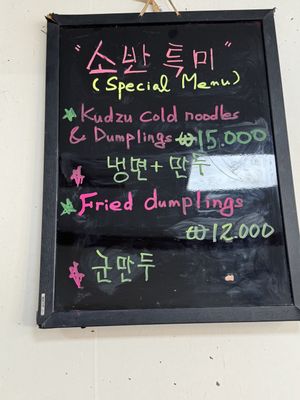 "소반 특미"
(Special Menu)
★ Kudzu cold noodles
& Dumplings ₩15,000
★ 냉면 + 만두
★ Fried dumplings
₩12,000
★ 군만두